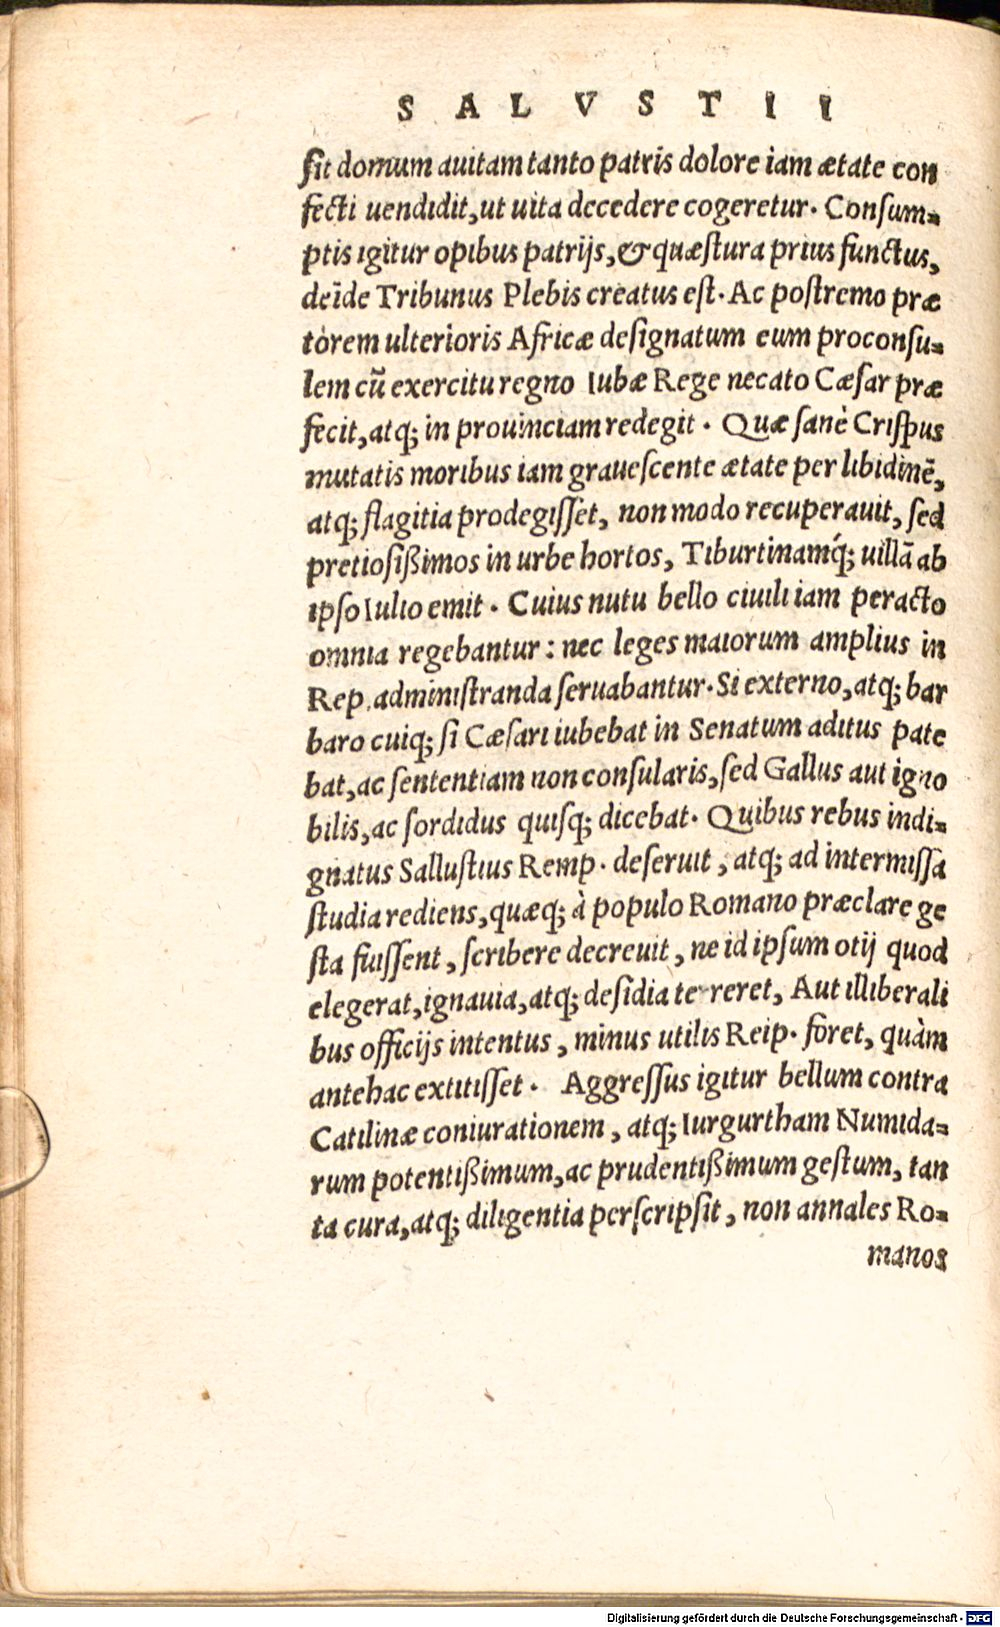 SALVSTII
ſit domum auitam tanto patris dolore iam ætate con
fecti uendidit, ut uita decedere cogeretur. Conſum-
ptis igitur opibus patrijs, & quæſtura prius functus,
deīde Tribunus Plebis creatus eſt. Ac poſtremo præ
torem ulterioris Africæ deſignatum eum proconſu-
lem cū exercitu regno Iubæ Rege necato Cæſar præ
fecit, atq; in prouinciam redegit. Quæ ſanè Criſpus
mutatis moribus iam graueſcente ætate per libidinē,
atq; flagitia prodegiſſet, non modo recuperauit, ſed
pretioſißimos in urbe hortos, Tiburtinamq́; uillā ab
ipſo Iulio emit. Cuius nutu bello ciuili iam peracto
omnia regebantur: nec leges maiorum amplius in
Rep. adminiſtranda ſeruabantur. Si externo, atq; bar
baro cuiq; ſi Cæſari iubebat in Senatum aditus pate
bat, ac ſententiam non conſularis, ſed Gallus aut igno
bilis, ac ſordidus quiſq; dicebat. Quibus rebus indi-
gnatus Salluſtius Remp. deſeruit, atq; ad intermiſſa
ſtudia rediens, quæq; à populo Romano præclare ge
ſta fuiſſent, ſcribere decreuit, ne id ipſum otij quod
elegerat, ignauia, atq; deſidia terreret, Aut illiberali
bus officijs intentus, minus utilis Reip. foret, quàm
antehac extitiſſet. Aggreſſus igitur bellum contra
Catilinæ coniurationem, atq; Iurgurtham Numida-
rum potentißimum, ac prudentißimum geſtum, tan
ta cura, atq; diligentia perſcripſit, non annales Ro-
manos
Digitalisierung gefördert durch die Deutsche Forschungsgemeinschaft - DFG